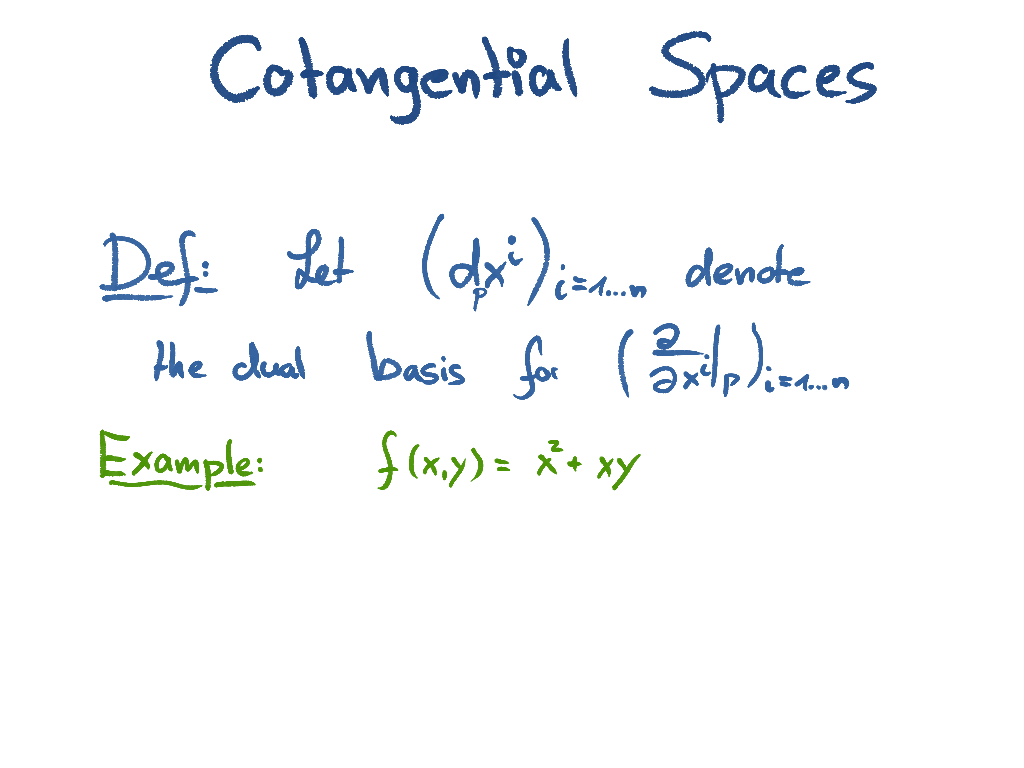 Cotangential Spaces
Def: Let (dₚxⁱ)ᵢ₌₁...ₙ denote
the dual basis for (∂/∂xⁱ|ₚ)ᵢ₌₁...ₙ
Example: f(x,y) = x² + xy